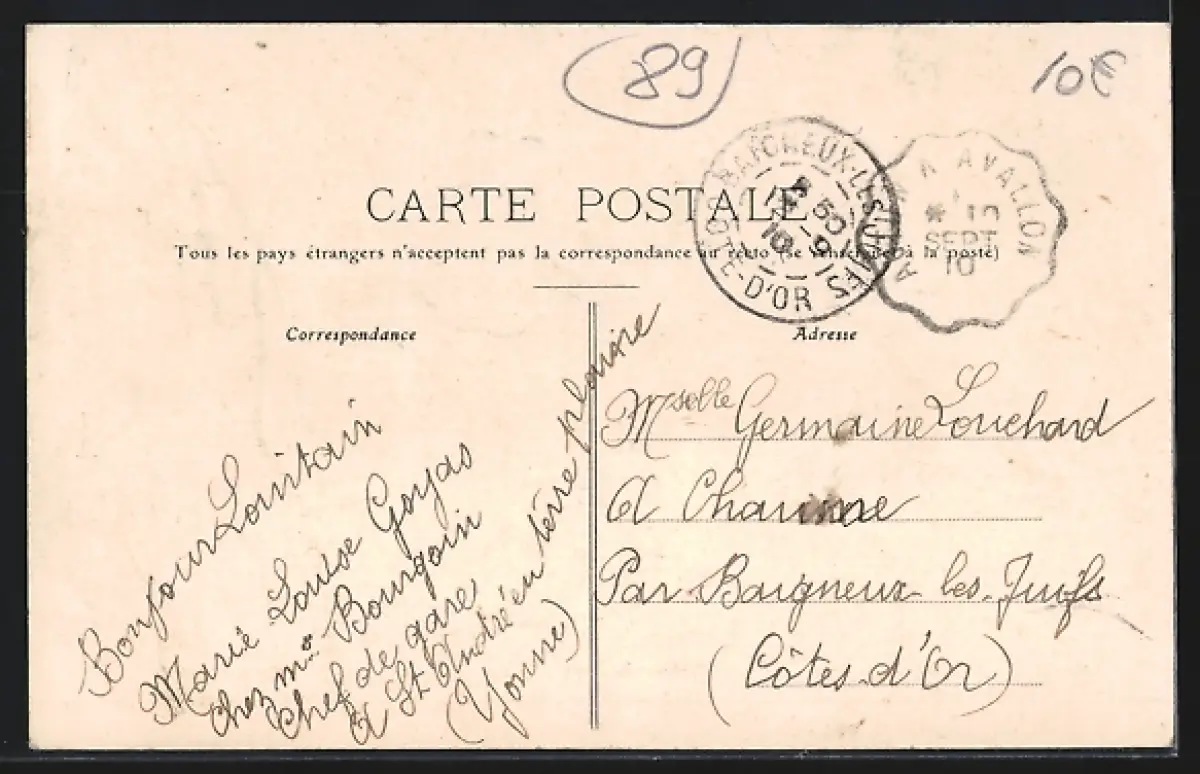 89
10€
CARTE POSTALE
Tous les pays étrangers n'acceptent pas la correspondance au recto (se renseigner à la poste)
BAIGNEUX-LES-JUIFS
COTE-D'OR
9
10
A AVALLON
10
SEPT
10
Correspondance
Bonjour Lointain
Marie Louise Goyas
chez mr Bourgoin
Chef de gare
a St André en terre plaine
(Yonne)
Adresse
Mselle Germaine Louchard
A Chaume
Par Baigneux-les-Juifs
(Côtes d'Or)